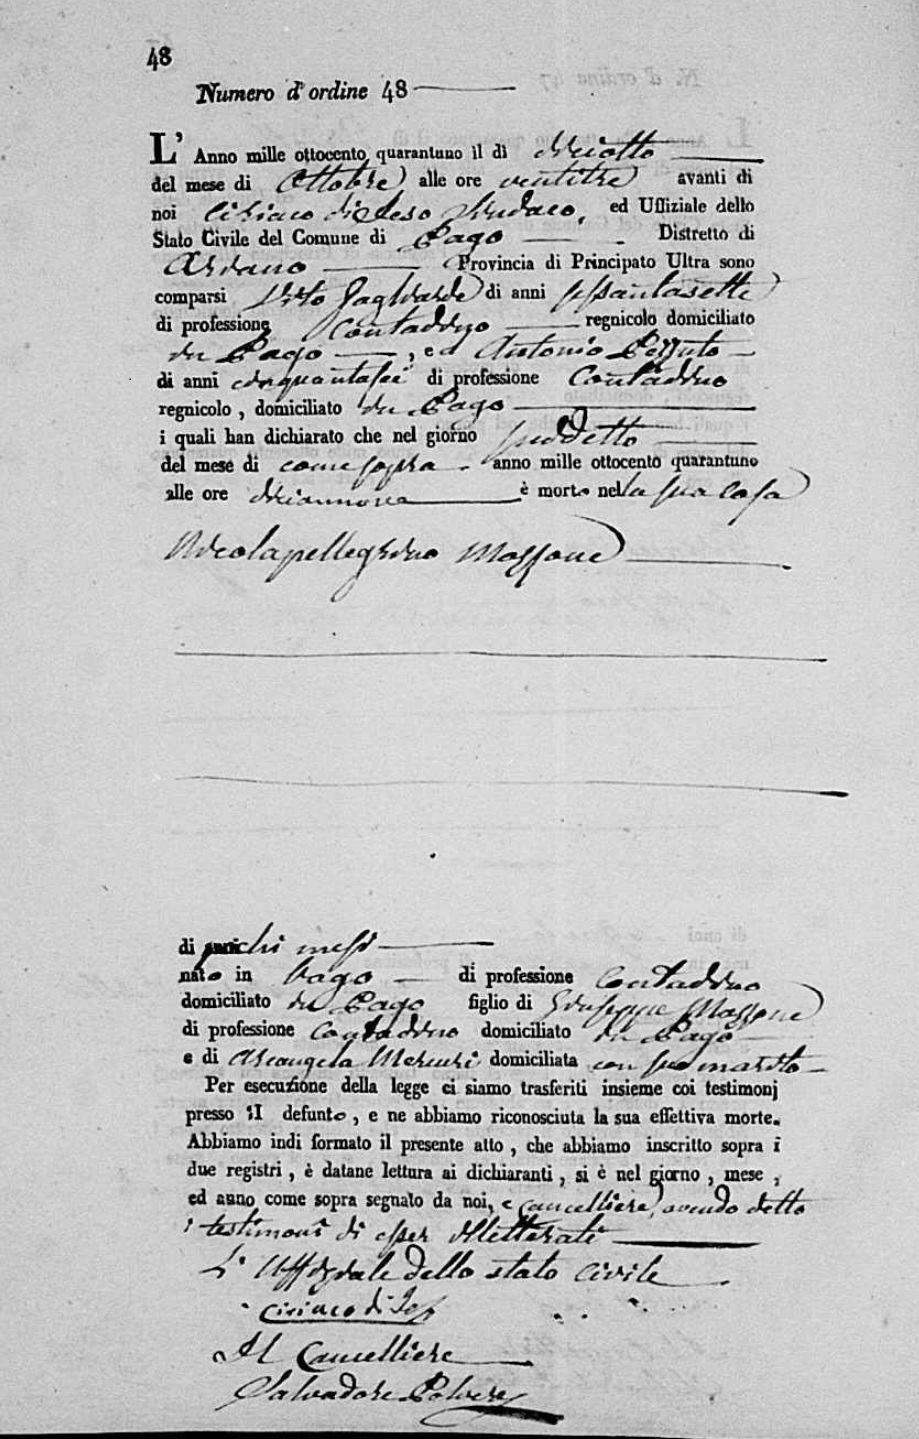 48
Numero d'ordine 48
L' Anno mille ottocento quarantuno il dì diciotto
del mese di Ottobre alle ore ventitre avanti di
noi Ciriaco di Jeso Sindaco, ed Uffiziale dello
Stato Civile del Comune di Pago Distretto di
Ariano Provincia di Principato Ultra sono
comparsi Vito Gagliarde di anni sessantasette
di professione Contadino regnicolo domiciliato
in Pago , ed Antonio
di anni cinquantasei di professione Contadino
regnicolo , domiciliato in Pago
i quali han dichiarato che nel giorno suddetto
del mese di come sopra anno mille ottocento quarantuno
alle ore diciannove è morto nella sua casa
Nicolapellegrino Massone
di pochi mesi
nato in Pago di professione Contadino
domiciliato in Pago figlio di Giuseppe Massone
di professione Contadino domiciliato in Pago
e di Arcangela Mercuri domiciliata con suo marito
Per esecuzione della legge ci siamo trasferiti insieme coi testimonj
presso il defunto , e ne abbiamo riconosciuta la sua effettiva morte.
Abbiamo indi formato il presente atto , che abbiamo inscritto sopra i
due registri , è datane lettura ai dichiaranti , si è nel giorno , mese ,
ed anno come sopra segnato da noi, e cancelliere, avendo detto
i testimoni di esser illetterati
L' Uffiziale dello stato civile
Ciriaco di Jeso
Il Cancelliere
Salvadore Polvere